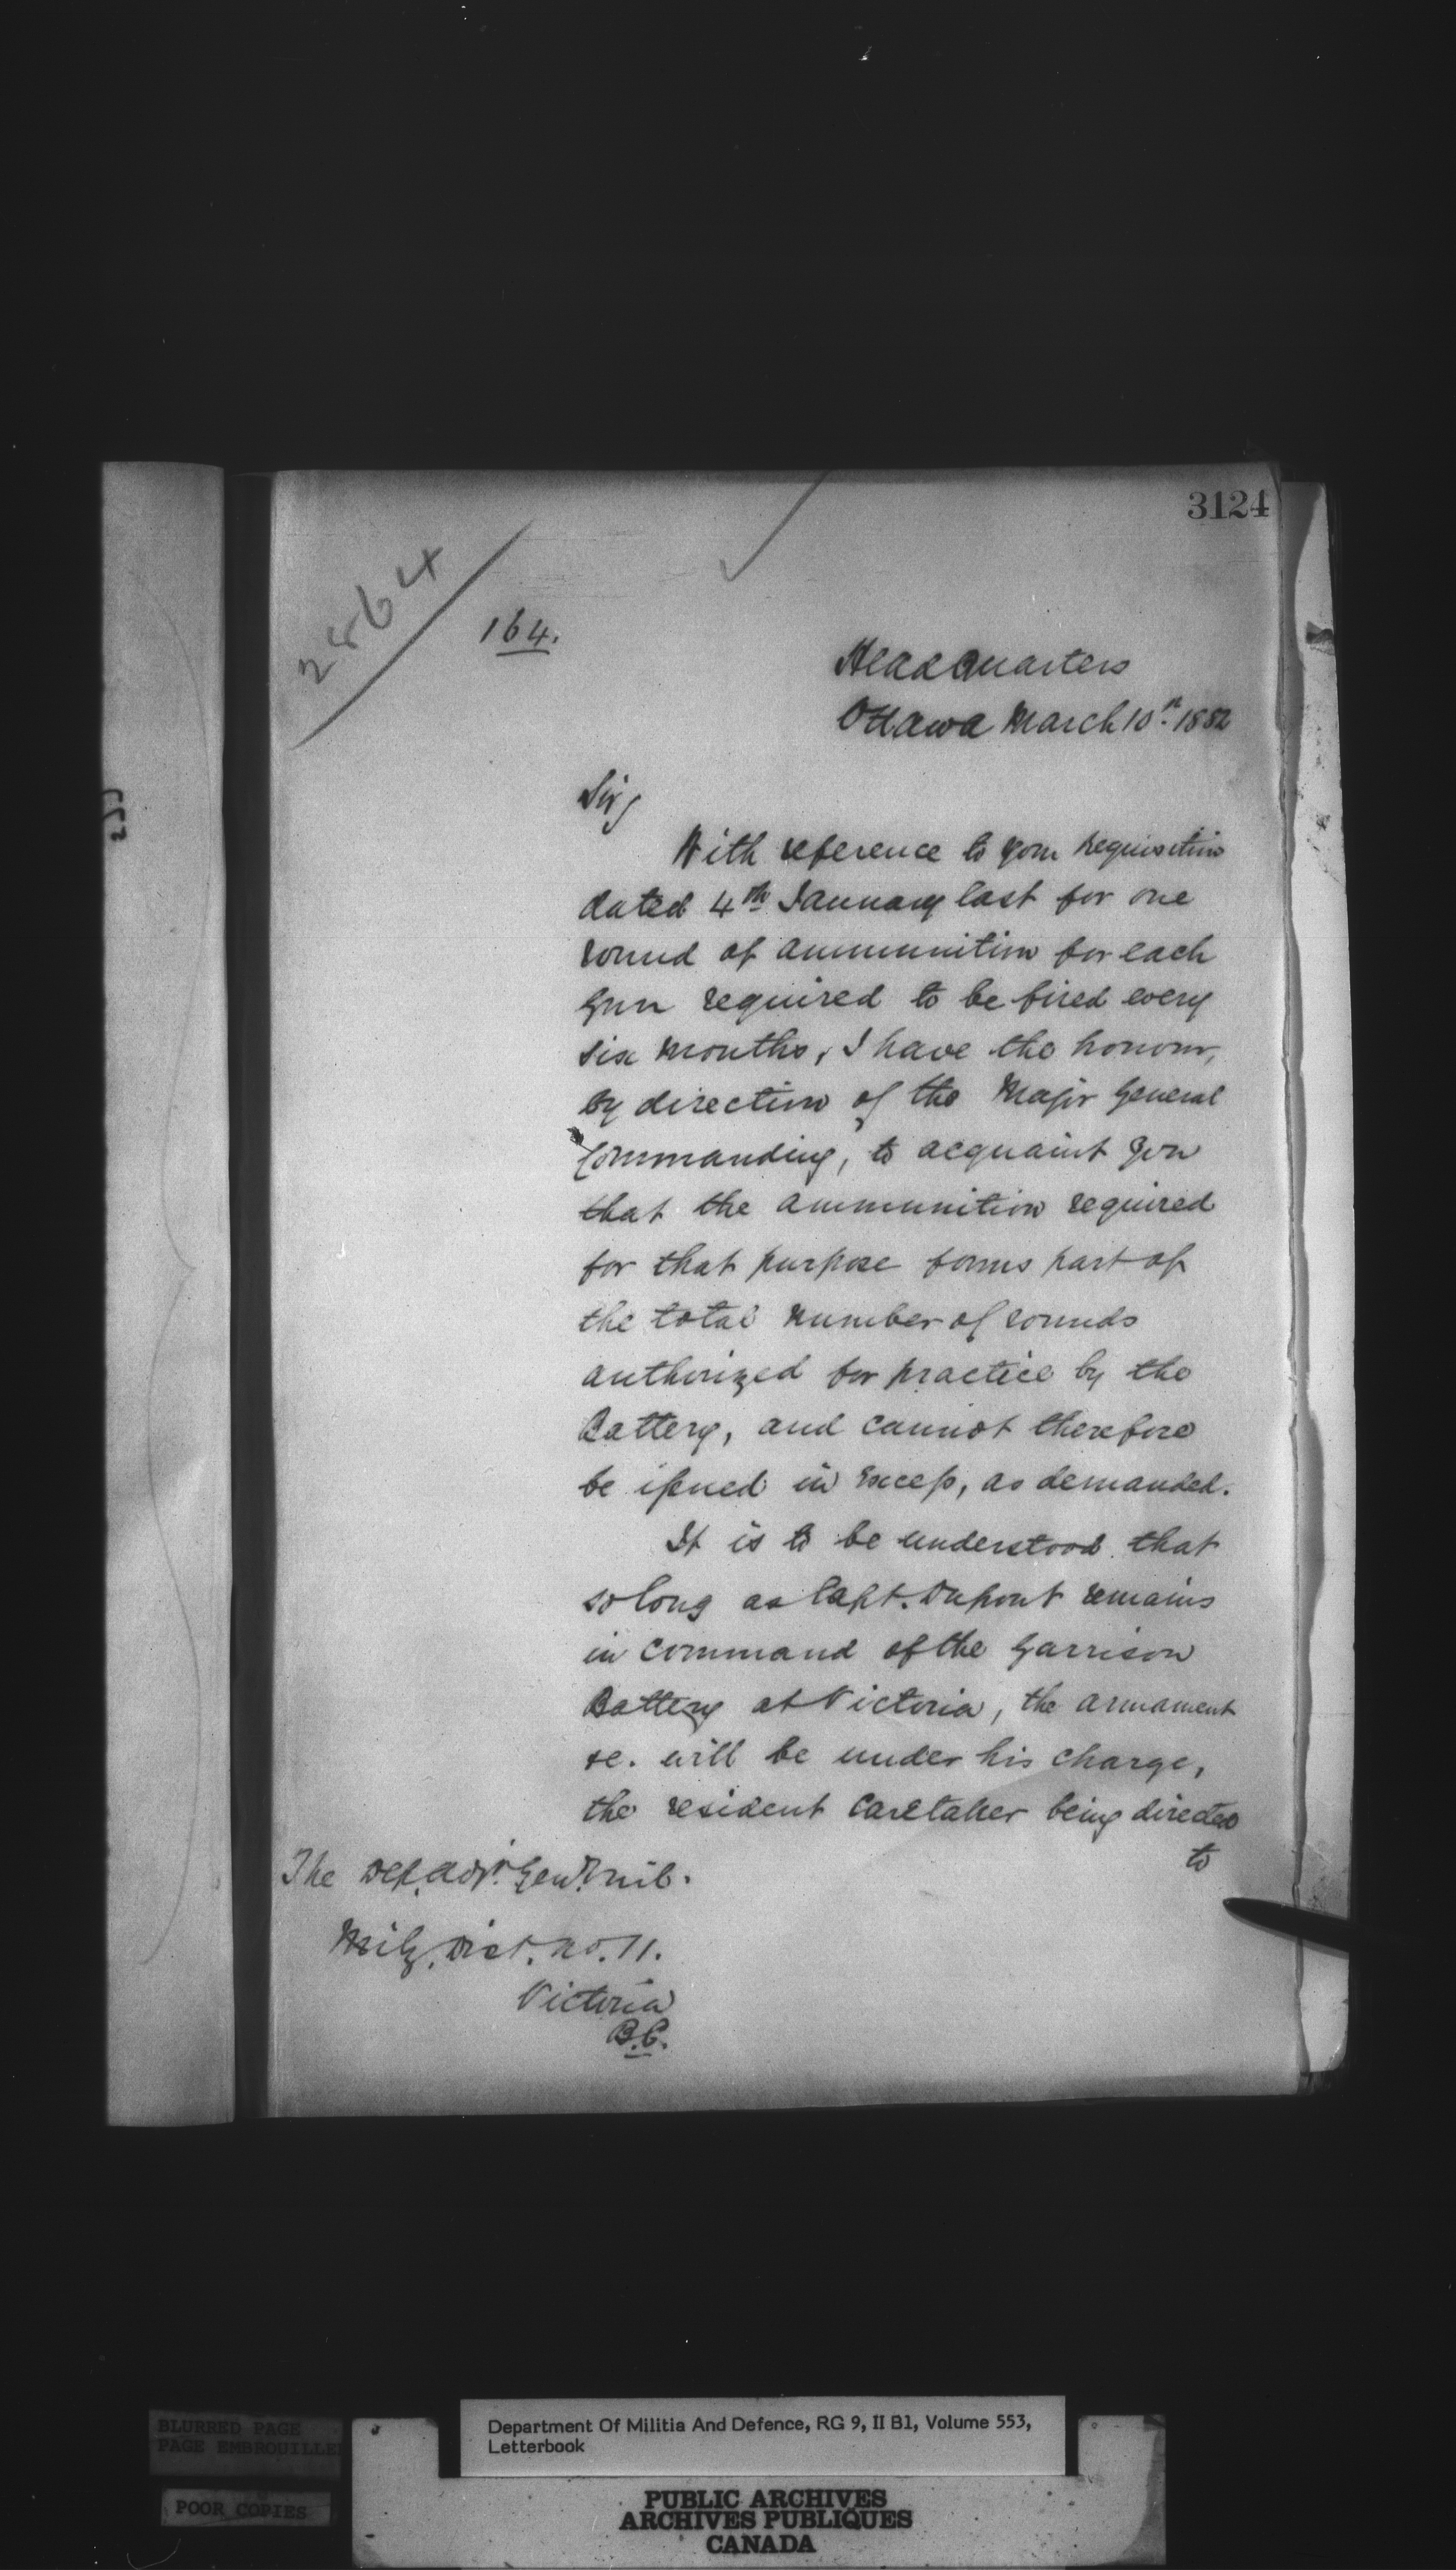 3124
2864
164.
Headquarters
Ottawa March 10th. 1882
Sir,
With reference to your requisition
dated 4th January last for one
round of ammunition for each
Gun required to be fired every
six months, I have the honour,
by direction of the Major General
Commanding, to acquaint you
that the ammunition required
for that purpose forms part of
the total number of rounds
authorized for practice by the
Battery, and cannot therefore
be issued in excess, as demanded.
It is to be understood that
so long as Capt. Dupont remains
in command of the Garrison
Battery at Victoria, the armament
&c. will be under his charge,
the resident Caretaker being directed
to
The Dep. Adjt. Genl. Mil.
Mily. Dist. No. 11.
Victoria
B.C.
BLURRED PAGE
PAGE EMBROUILLEE
POOR COPIES
Department Of Militia And Defence, RG 9, II B1, Volume 553,
Letterbook
PUBLIC ARCHIVES
ARCHIVES PUBLIQUES
CANADA